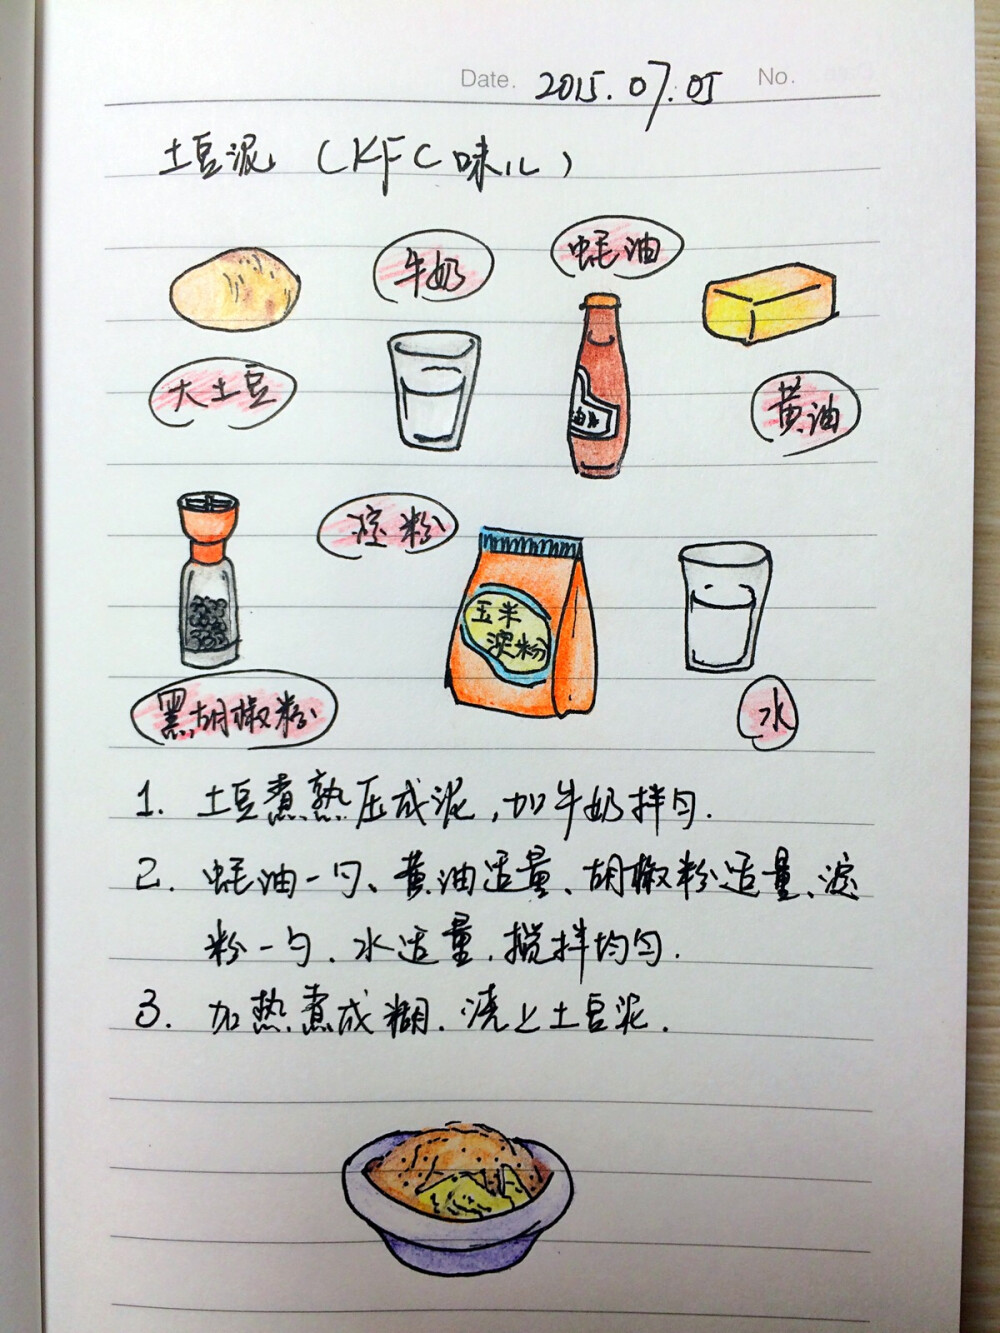 Date. 2015.07.05 No.
土豆泥 (KFC味儿)
牛奶
蚝油
大土豆
黄油
淀粉
玉米
淀粉
黑胡椒粉
水
1. 土豆煮熟压成泥,加牛奶拌匀.
2. 蚝油一勺、黄油适量、胡椒粉适量、淀
粉一勺、水适量,搅拌均匀.
3. 加热煮成糊.浇上土豆泥.